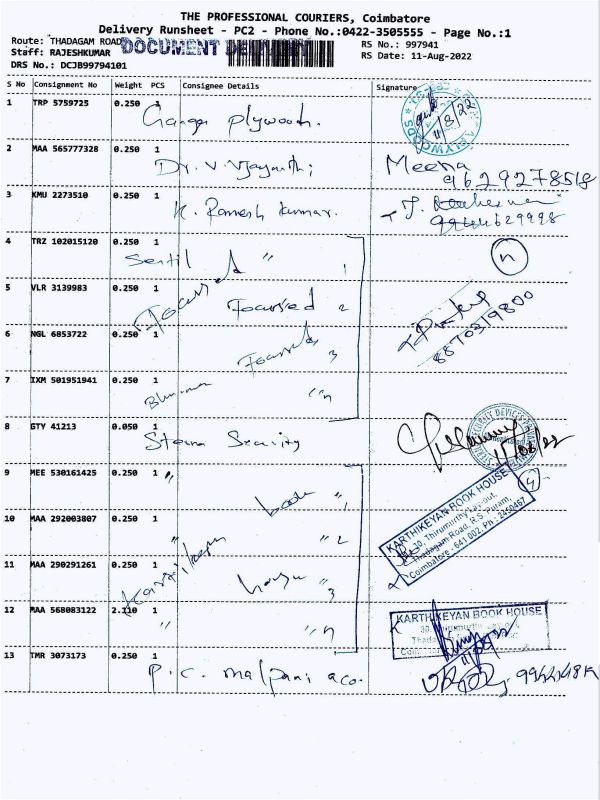 THE PROFESSIONAL COURIERS, Coimbatore
Delivery Runsheet - PC2 - Phone No.:0422-3505555 - Page No.:1
Route: THADAGAM ROAD
DOCUMENT
RS No.: 997941
Staff: RAJESHKUMAR
RS Date: 11-Aug-2022
DRS No.: DCJB99794101
S No Consignment No Weight PCS Consignee Details Signature
1 TRP 5759725 0.250 1
Ganga plywoods.
11/8/22
2 MAA 565777328 0.250 1
Dr. V. Vijayanthi
Meena
9629278518
3 KMU 2273510 0.250 1
K. Ramesh Kumar.
4 TRZ 102015120 0.250 1
Sentil " 1
n
5 VLR 3139983 0.250 1
Focussed
Focussed 2
8870319800
6 NGL 6853722 0.250 1
Focussed 3
7 IXM 501951941 0.250 1
"n
8 GTY 41213 0.050 1
Sterna Security
11/08/22
9 MEE 530161425 0.250 1 "
book "1
4
KARTHIKEYAN BOOK HOUSE
30, Thirumurthy Lay-out,
Thadagam Road, R.S. Puram,
Coimbatore - 641 002. Ph : 2450467
10 MAA 292003807 0.250 1
" "2
11 MAA 290291261 0.250 1
Karthikeyan
house "3
12 MAA 568083122 2.110 1
" "n
KARTHIKEYAN BOOK HOUSE
13 TMR 3073173 0.250 1
P. C. malpani &co.